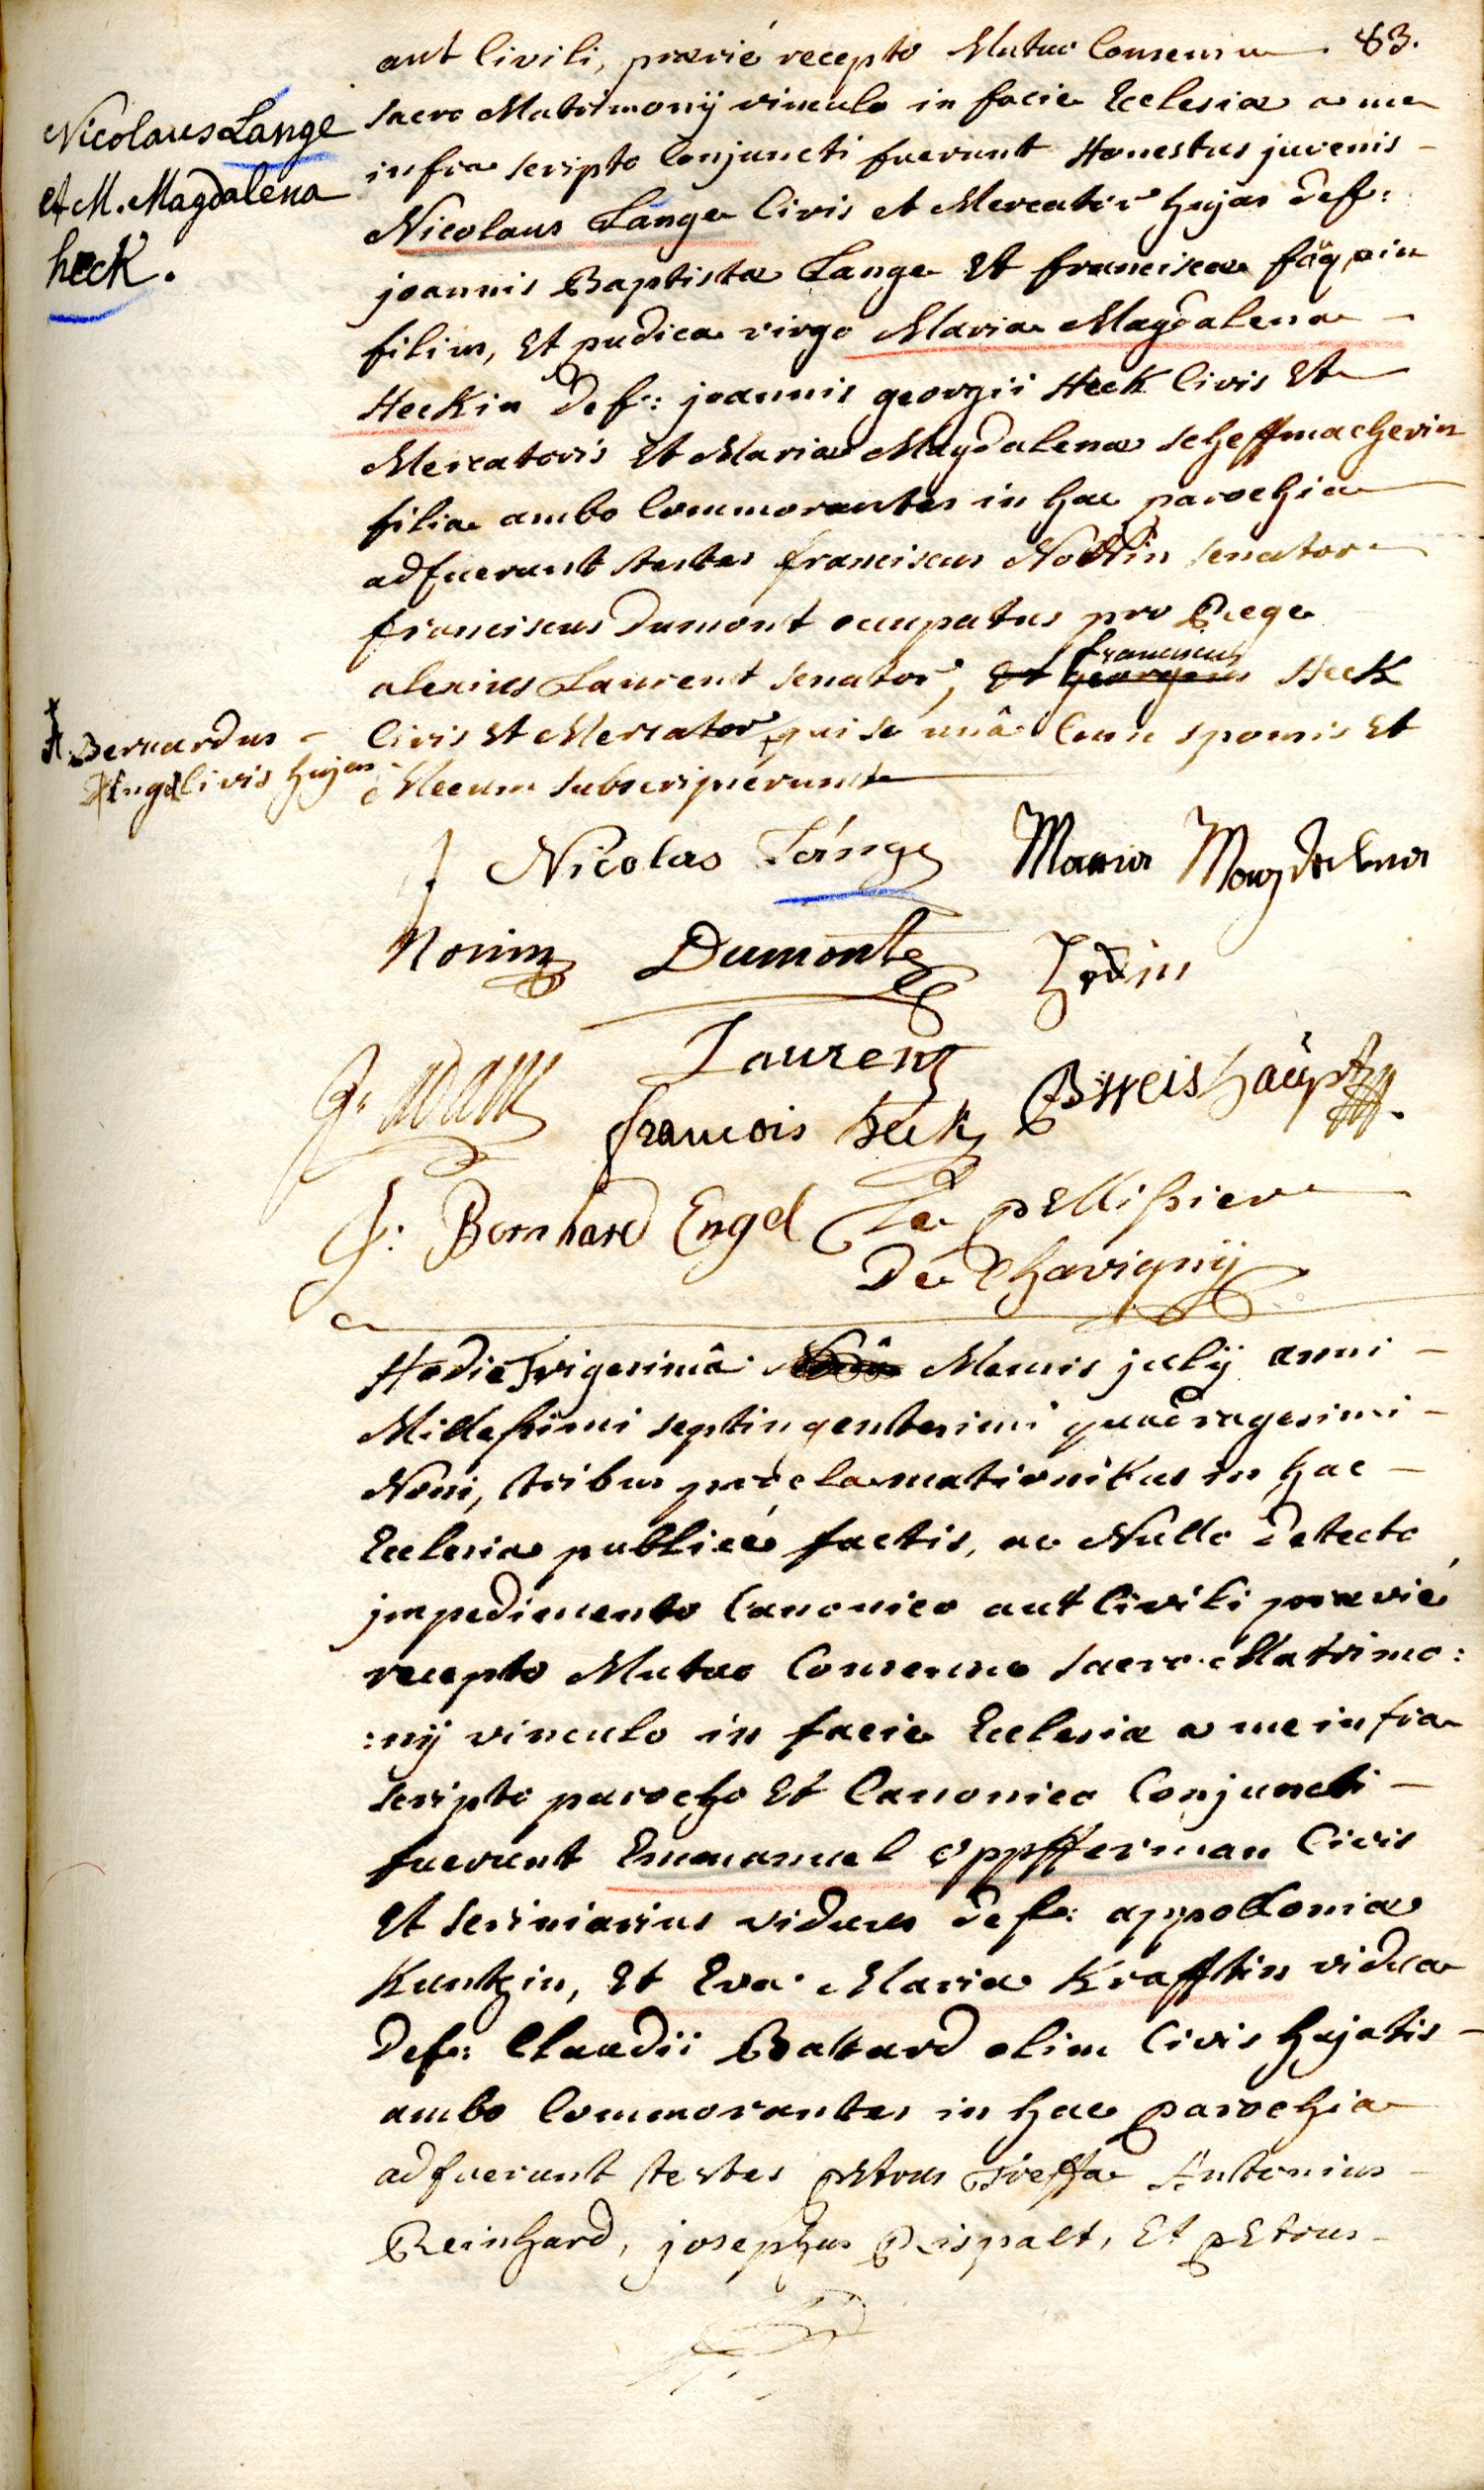 83.
aut Civili, prævié recepto Mutuo Consensu
sacro Matrimonÿ vinculo in facie Ecclesiæ a me
infra scripto Conjuncti fuerunt Honestus juvenis
Nicolaus Lange Civis et Mercator hujas def:
joannis Baptistæ Lange Et franciscæ
filius, Et pudica virgo Maria Magdalena
Heckin def: joannis georgii Heck Civis Et
Mercatoris Et Mariæ Magdalenæ scheffmacherin
filia ambo Commorantes in hac parochia
adfuerunt testes franciscus Nottin senator
franciscus Dumont occupatus pro Rege
franciscus
alexius Laurent senator, Et Georgius Heck
Civis Et Mercator, qui se unâ Cum sponsis Et
Mecum subscripserunt
Nicolaus Lange
et M. Magdalena
heck.
Bernardus
Engel Civis hujas
Nicolas Lang
Maria Magdalena
Dumont
Laurent
françois heck
B Weishäupt
J: Bernhard Engel
Le pellissier
De Chavignÿ
Hodie Trigesimâ Mensis julÿ anni
Millessimi septingentesimi quadragesimi
Noni, tribus proclamationibus in hac
Ecclesia publicé factis, ac Nullo detecto
jmpedimento Canonico aut Civili prævié
recepto Mutuo Consensu sacro Matrimo:
:nÿ vinculo in facie Ecclesiæ a me infra
scripto parocho Et Canonico Conjuncti
fuerunt Emmanuel oppfferman Civis
Et scriniarius viduus def: appolloniæ
Kuntzin, Et Eva Maria Krafftin vidua
def: Claudii Battard olim Civis hujatis
ambo Commorantes in hac parochia
adfuerunt testes petrus Antonius
Reinhard, josephus Rispalt, Et petrus